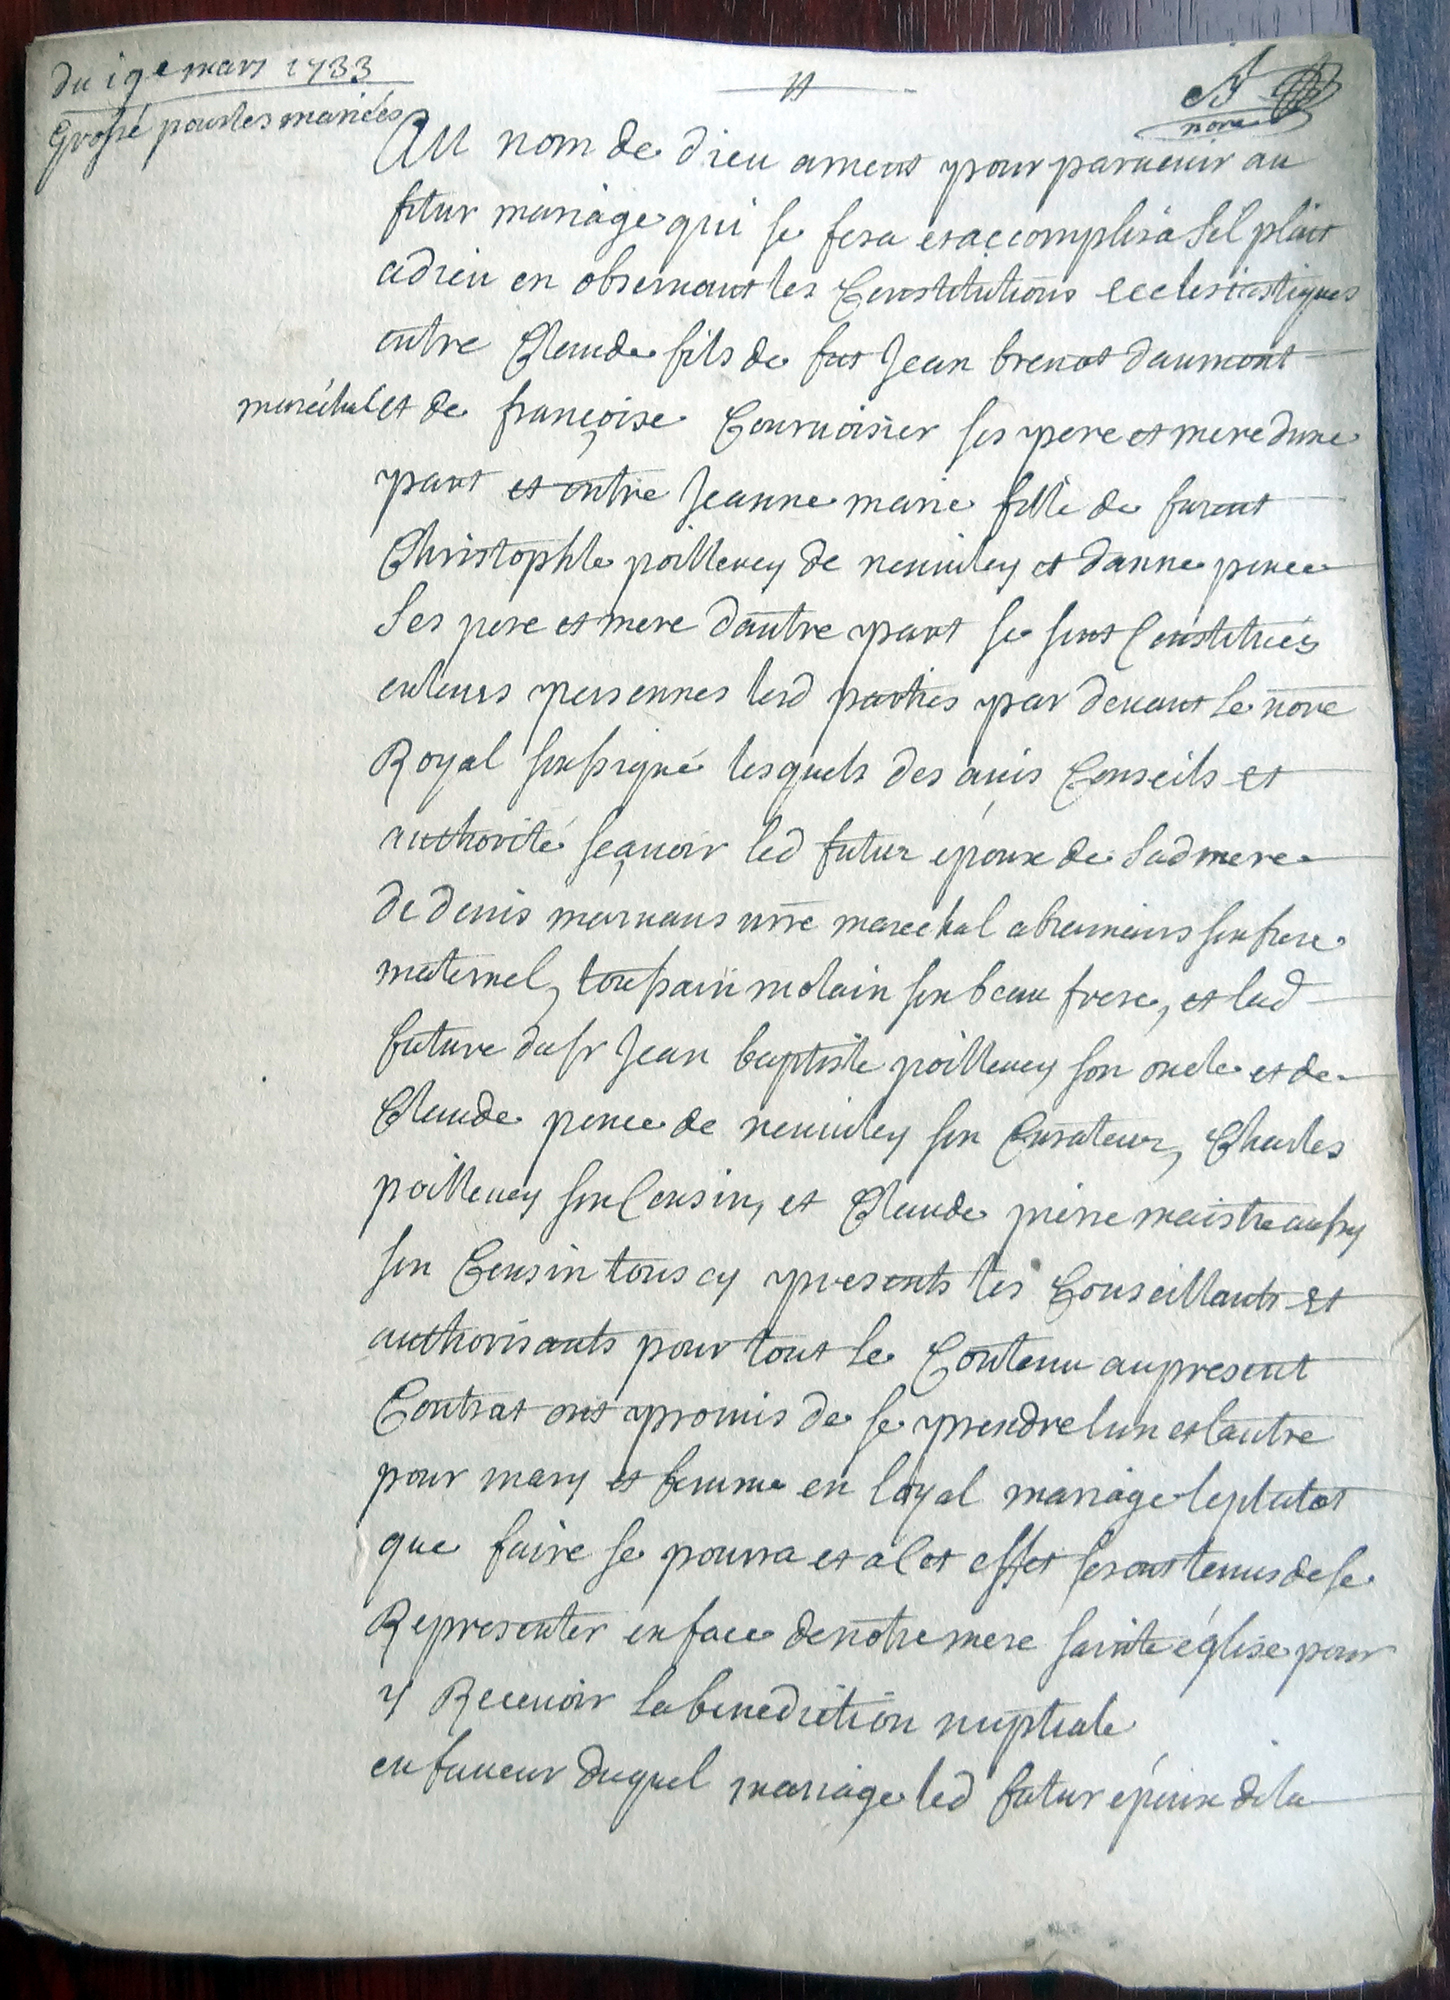 du 19e mars 1733
Grossé pour les mariés
nore
Au nom de dieu ament pour paruenir au
futur mariage qui se fera et accomplira sil plait
adieu en obseruant les Constitutions ecclesiastiques
entre Claude fils de fut Jean brenot daumont
marechal et de françoise Cournoisier ses pere et mere dune
part et entre Jeanne marie fille de furent
Christophle poilleuey de neuuiley et danne pence
ses pere et mere dautre part se sont Constitués
en leurs personnes lesd parties par deuant le nore
Royal soussigné lesquels des auis Conseils et
authorité sçauoir led futur époux de sad mere
de denis maruans mre marechal abreunans son frere
maternel, toussain molain son beau frere, et lad
future du sr Jean baptiste poilleuey son oncle et de
Claude pence de neuuiley son Curateur, Charles
poilleuey son Cousin, et Claude pierre maistre aussy
son Cousin tous cy presents les Conseillants et
authorisants pour tout le Contenu au present
Contrat ont promis de se prendre lun et lautre
pour mary et femme en loyal mariage leplutot
que faire se pourra et a Cet effet seront tenus de se
Representer en face de notre mere sainte église pour
y Receuoir la benediction nuptiale
en faueur duquel mariage led futur époux dela